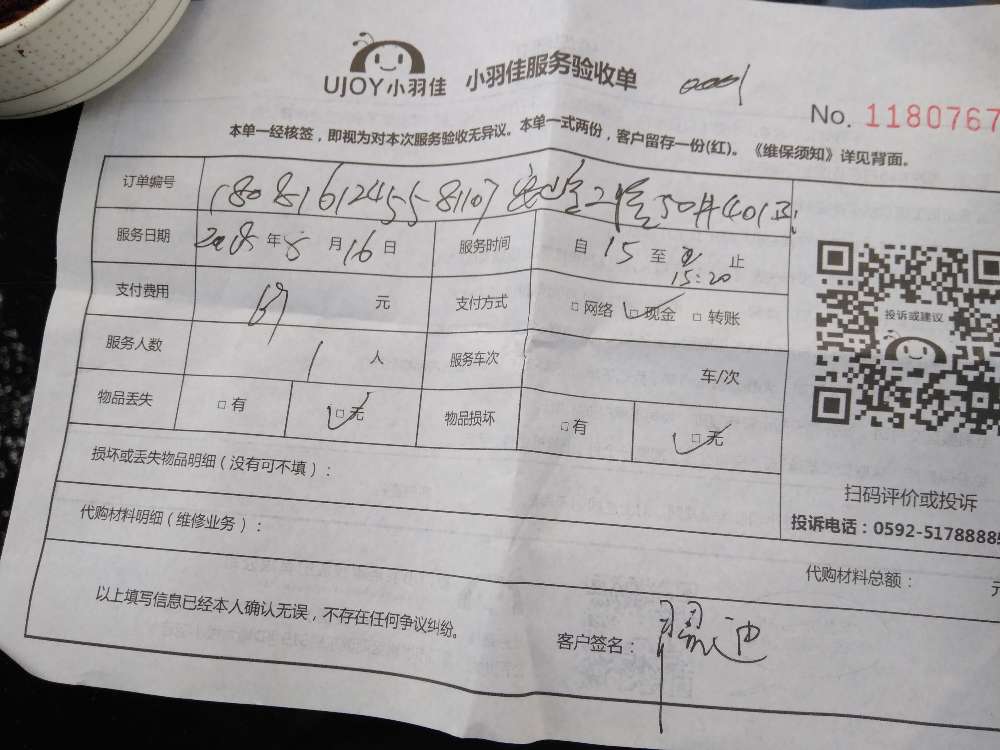 UJOY小羽佳 小羽佳服务验收单 0001
No. 1180767
本单一经核签，即视为对本次服务验收无异议。本单一式两份，客户留存一份(红)。《维保须知》详见背面。
订单编号
服务日期 2018 年 8 月 16 日 服务时间 自 15 至 15:20 止
支付费用 元 支付方式 □ 网络 □ 现金 □ 转账
服务人数 1 人 服务车次 车/次
物品丢失 □ 有 □ 无 物品损坏 □ 有 □ 无
损坏或丢失物品明细（没有可不填）：
代购材料明细（维修业务）：
投诉或建议
扫码评价或投诉
投诉电话：0592-5178885
代购材料总额： 元
以上填写信息已经本人确认无误，不存在任何争议纠纷。
客户签名：